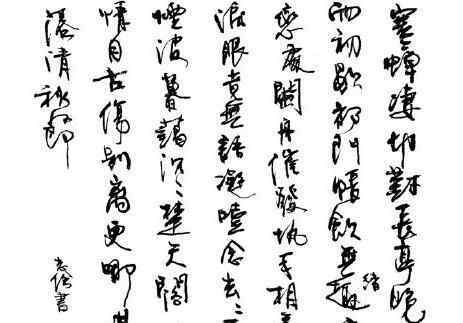 寒蟬凄切對長亭晚
雨初歇都門帳飲無趣
緒
戀處闌舟催發执手相
淚眼竟無語凝噎念去々
煙波暮靄沉々楚天闊
情自古傷別離更哪
落清秋節
書